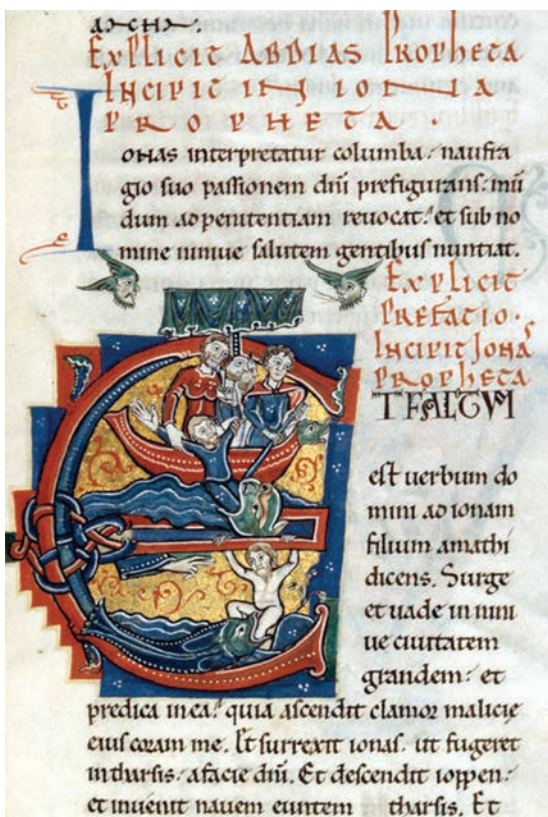 EXPLICIT ABDIAS PROPHETA
INCIPIT IONA
PROPHETA
Ionas interpretatur columba: naufra
gio suo passionem dni prefigurans: mū
dum ad penitentiam reuocat: et sub no
mine niniue salutem gentibus nuntiat.
EXPLICIT
PREFATIO.
INCIPIT IONAS
PROPHETA
ET FACTUM
est uerbum do
mini ad ionam
filium amathi
dicens. Surge
et uade in nini
ue ciuitatem
grandem: et
predica in ea: quia ascendit clamor malicię
eius coram me. Et surrexit ionas. ut fugeret
in tharsis: a facie dñi. Et descendit ioppen:
et inuenit nauem euntem tharsis. Et